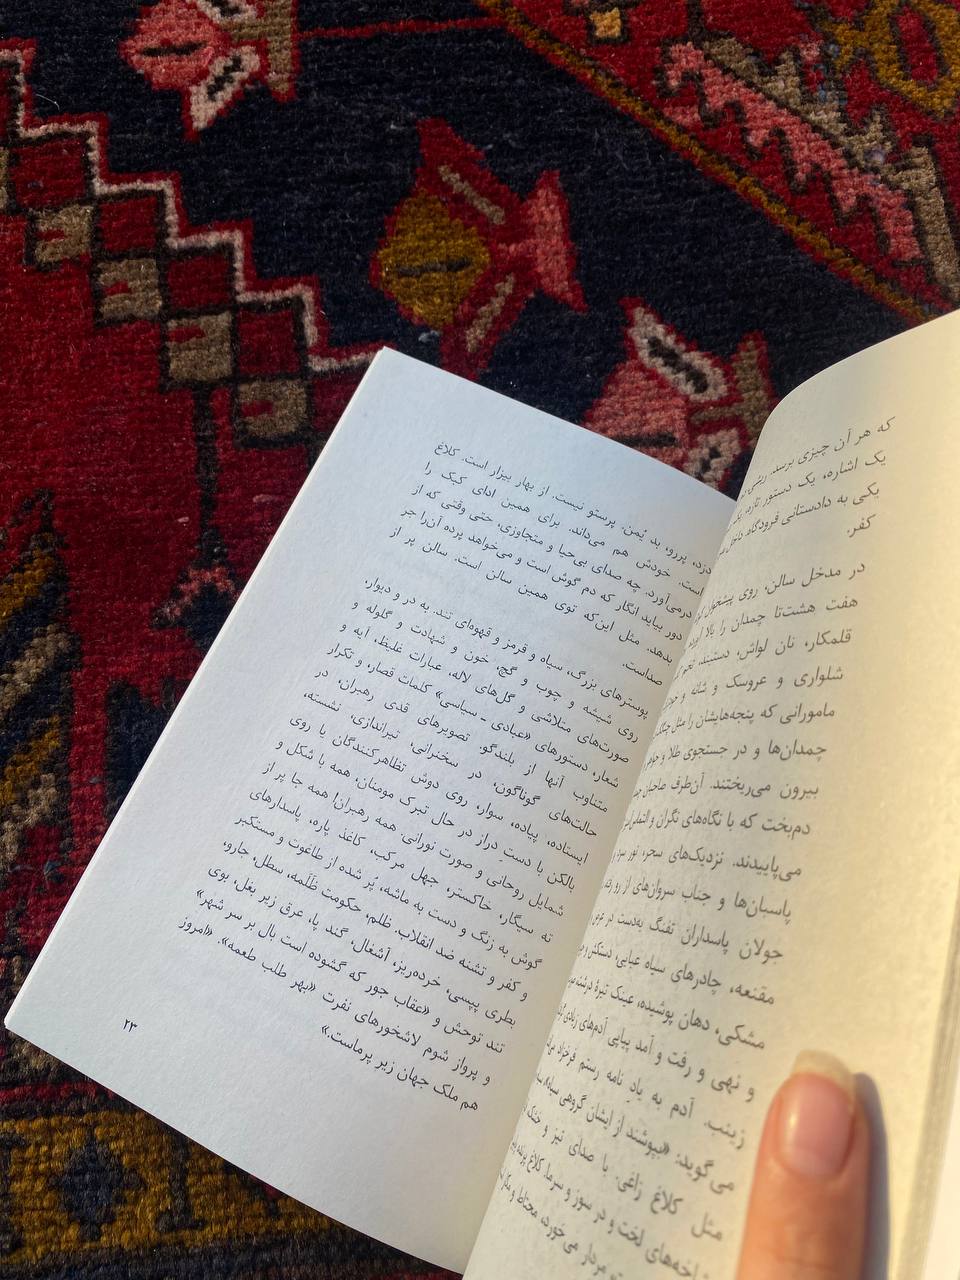 که هر آن چیزی برسد.
یک اشاره، یک دستور تازه،
یکی به دادستانی فرودگاه.
کفر.
در مدخل سالن، روی پیشخوان
هفت هشت‌تا چمدان را بالا
قلمکار، نان لواش، دستبند،
شلواری و عروسک و شانه و
مامورانی که پنجه‌هایشان را مثل
چمدان‌ها و در جستجوی طلا و
بیرون می‌ریختند. آن‌طرف صاحبان
دم‌بخت که با نگاه‌های نگران و
می‌پاییدند. نزدیک‌های سحر، نور
پاسبان‌ها و جناب سروان‌های از رو
جولان پاسداران تفنگ به‌دست در
مقنعه، چادرهای سیاه عبایی، دستکش و
مشکی، دهان پوشیده، عینک تیرهٔ درشت،
و نهی و رفت و آمد پیاپی آدم‌های زیادی
زینب. آدم به یادِ نامه رستم فرخزاد
می‌گوید: «بپوشند از ایشان گروهی سیاه»
مثل کلاغ زاغی. با صدای تیز و
شاخه‌های لخت و در سوز و سرما. کلاغ
مردار می‌خورد، محتاط و
دزد، پررو، بد یُمن. پرستو نیست. از بهار بیزار است. کلاغ
است. خودش هم می‌داند. برای همین ادای کبک را
درمی‌آورد. چه صدای بی‌حیا و متجاوزی، حتی وقتی که از
دور بیاید انگار که دم گوش است و می‌خواهد پرده آن‌را جر
بدهد. مثل این‌که توی همین سالن است. سالن پر از
صداست.
پوسترهای بزرگ، سیاه و قرمز و قهوه‌ای تند. به در و دیوار،
روی شیشه و چوب و گچ، خون و شهادت و گلوله و
صورت‌های متلاشی و گل‌های لاله، عبارات غلیظ، آیه و
شعار، دستورهای «عبادی ـ سیاسی» کلمات قصار، و تکرار
متناوب آنها از بلندگو. تصویرهای قدی رهبران، در
حالت‌های گوناگون، در سخنرانی، تیراندازی، نشسته،
ایستاده، پیاده، سوار، روی دوش تظاهرکنندگان یا روی
بالکن با دستِ دراز در حال تبرک مومنان، همه با شکل و
شمایل روحانی و صورت نورانی. همه رهبران! همه جا پر از
ته سیگار، خاکستر، جهل مرکب، کاغذ پاره، پاسدارهای
گوش به زنگ و دست به ماشه، پُر شده از طاغوت و مستکبر
و کفر و تشنه ضد انقلاب. ظلم، حکومت ظَلَمه، سطل، جارو،
بطری پپسی، خرده‌ریز، آشغال، گند پا، عرق زیر بغل، بوی
تند توحش و «عقاب جور که گشوده است بال بر سر شهر»
و پرواز شوم لاشخورهای نفرت «بهر طلب طعمه». «امروز
هم ملک جهان زیر پر‌ماست.»
۲۳